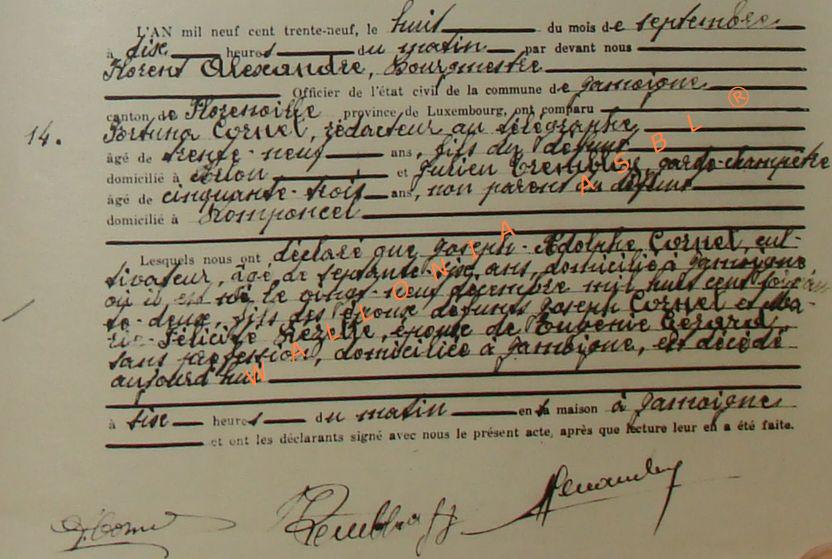 L'AN mil neuf cent trente-neuf, le huit du mois de septembre
à dix heures du matin par devant nous
Florent Alexandre, Bourgmestre
Officier de l'état civil de la commune de Jamoigne
canton de Florenville province de Luxembourg, ont comparu
14. Cornel, rédacteur au télégraphe
âgé de trente-neuf ans, fils du défunt
domicilié à Arlon et Julien garde-champêtre
âgé de cinquante-trois ans, non parent du défunt
domicilié à Romponcel
Lesquels nous ont déclaré que Joseph-Adolphe Cornel, cul-
tivateur, âgé de septante-six ans, domicilié à Jamoigne
où il est né le vingt-neuf décembre mil huit cent soixan-
te-deux, fils des époux défunts Joseph Cornel et Ma-
rie-Félicité épouse de Eugénie Gérard,
sans profession, domiciliée à Jamoigne, est décédé
aujourd'hui
à six heures du matin en sa maison à Jamoigne
et ont les déclarants signé avec nous le présent acte, après que lecture leur en a été faite.
WALLONIA ASBL ®